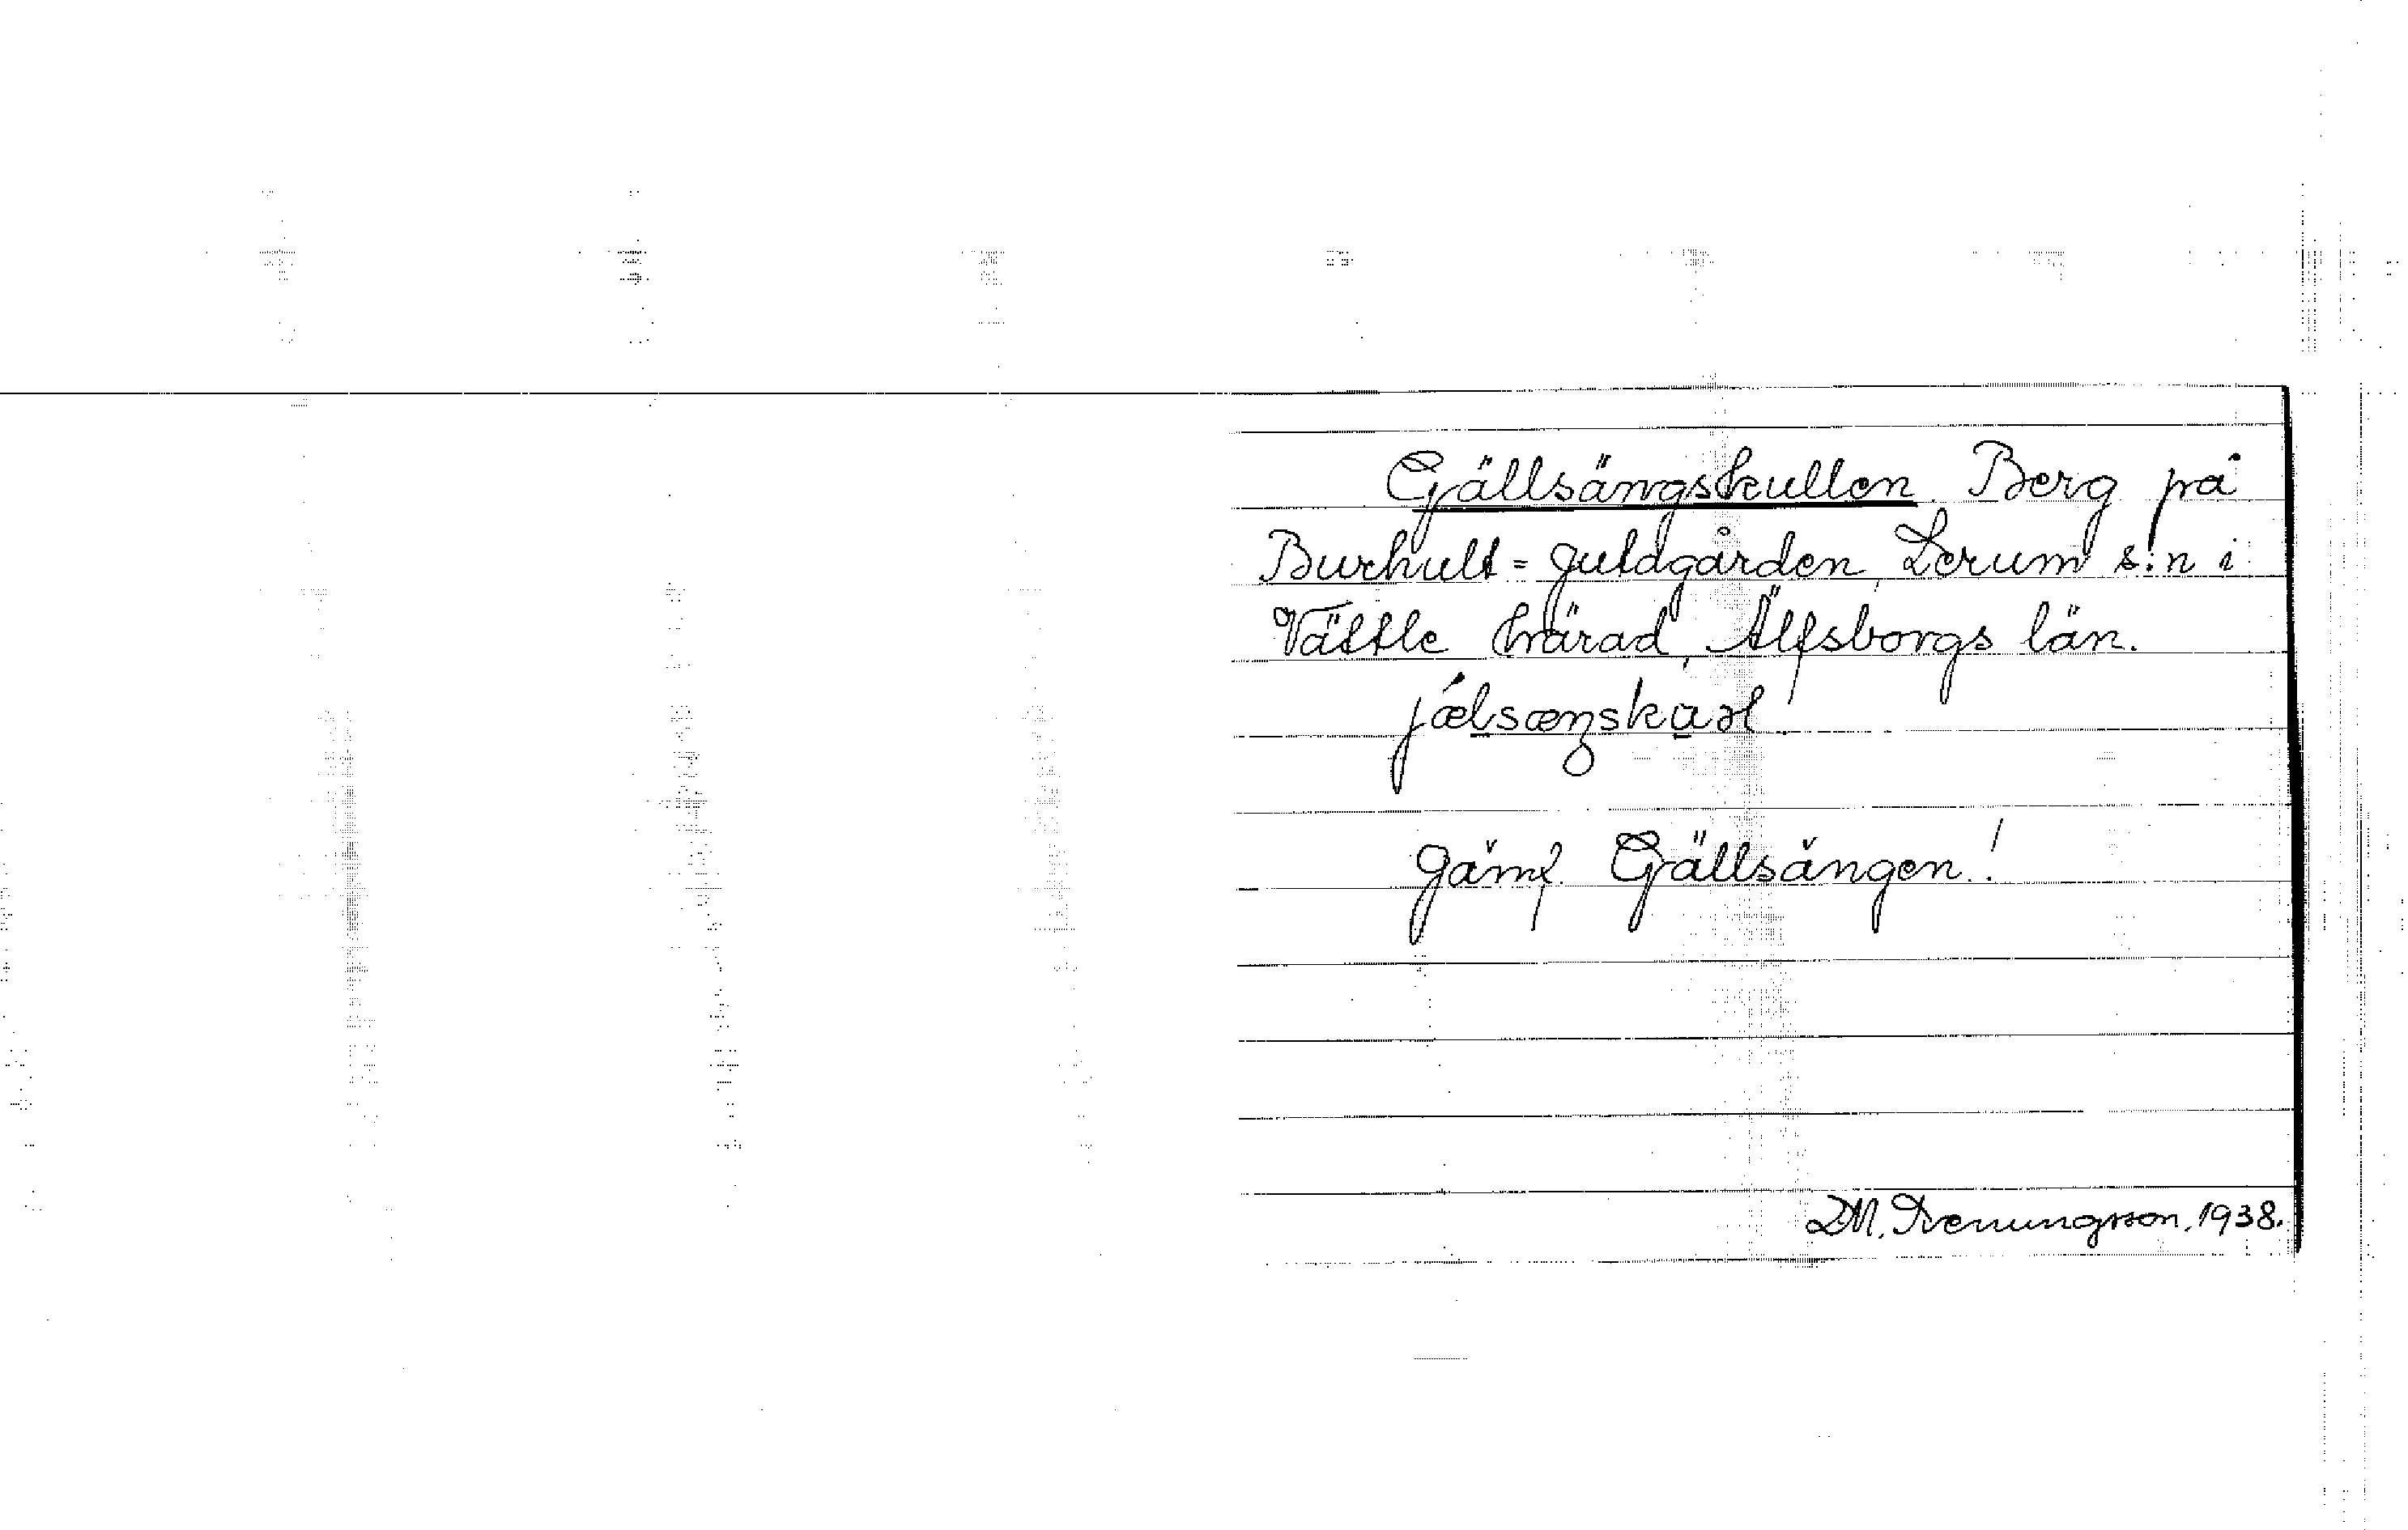 Gjällsängskullen. Berg på
Burhult=Jutagården, Lerum s:n i
Vättle härad, Älfsborgs län.
Jämf. Gjällsängen!
D.M. Svenungsson, 1938.